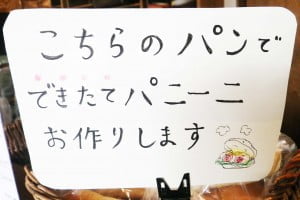 こちらのパンで
できたてパニーニ
お作りします